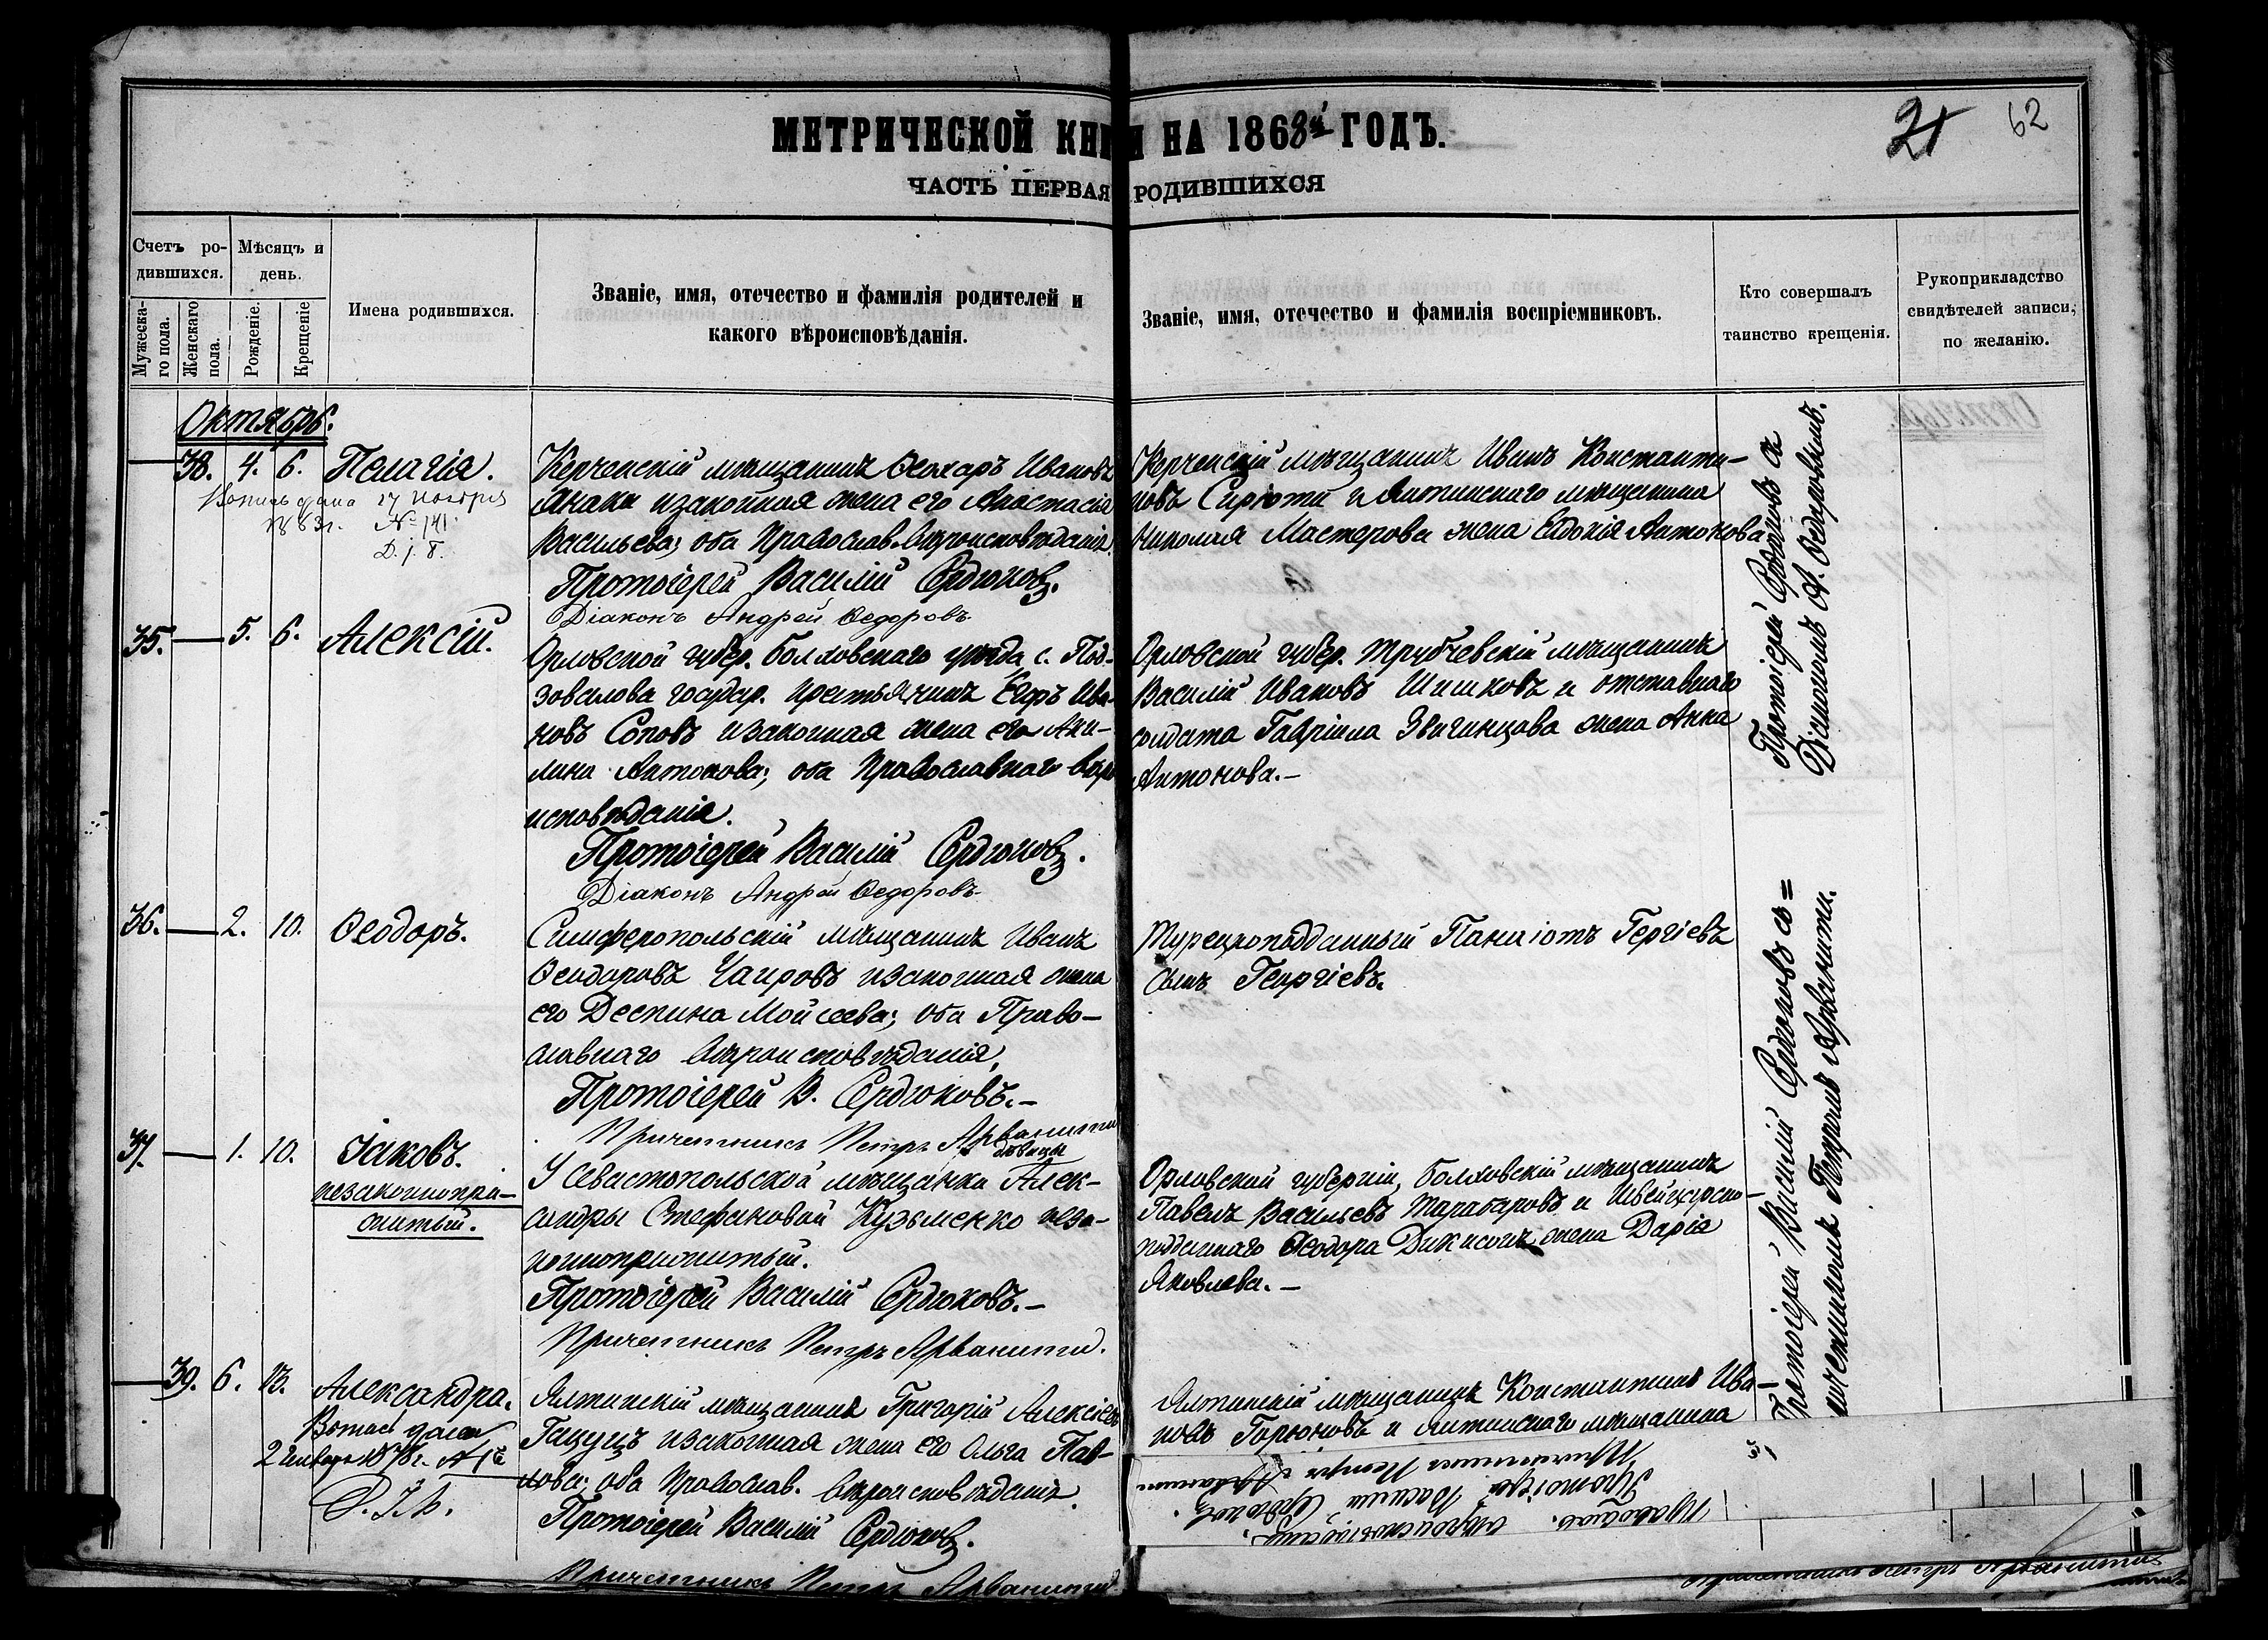 МЕТРИЧЕСКОЙ КНИГИ НА 1868й ГОДЪ.
21 62
ЧАСТЬ ПЕРВАЯ РОДИВШИХСЯ
Счетъ ро-
дившихся.
Мужеска-
го пола.
Женскаго
пола.
Мѣсяцъ и
день.
Рожденіе.
Крещеніе
Имена родившихся.
Званіе, имя, отечество и фамилія родителей и
какого вѣроисповѣданія.
Званіе, имя, отечество и фамилія воспріемниковъ.
Кто совершалъ
таинство крещенія.
Рукоприкладство
свидѣтелей записи,
по желанію.
Октябрь.
38. 4. 6. Пелагія.
27 Ноября
1883г. № 141.
Керченскій мѣщанинъ Ѳеохаръ Ивановъ
изаконная жена его Анастасія
Васильева; оба Православ. вѣроисповѣданія
Протоіерей Василій Сердюковъ.
Діаконъ Андрей Ѳедоровъ
Керченскій мѣщанинъ Иванъ Константи-
новъ и Ялтинскаго мѣщанина
Николая Мастерова жена Евдокія Антонова
Протоіерей Сердюковъ съ
Діакономъ А. Ѳедоровымъ.
35. 5. 6. Алексій.
Орловской губер. Болховскаго уѣзда с. Под-
зовалова государ. крестьянинъ Егоръ Ива-
новъ Соповъ изаконная жена его Аку-
лина Антонова; оба Православнаго вѣро
исповѣданія.
Протоіерей Василій Сердюковъ.
Діаконъ Андрей Ѳедоровъ
Орловской губер. Трубчевскій мѣщанинъ
Василій Ивановъ Шишковъ и отставнаго
солдата Гавріила Звигинцова жена Анна
Антонова.—
36. 2. 10. Ѳеодоръ.
Симферопольскій мѣщанинъ Иванъ
Ѳеодоровъ Чаировъ изаконная жена
его Деспина Мойсеева; оба Право-
славнаго вѣроисповѣданія,
Протоіерей В. Сердюковъ.—
Причетникъ Петръ Арванити
Турецкоподданный Панаіотъ Гергіевъ
сынъ Георгіевъ.
Протоіерей Василій Сердюковъ съ=
причетникомъ Арванити.
37. 1. 10. Іаковъ.
незаконнопри-
житый.
У Севастопольской мѣщанки дѣвицы Алек-
сандры Стефановой Кузьменко неза-
конноприжитый.
Протоіерей Василій Сердюковъ.—
Причетникъ Петръ Арванити.
Орловской губерніи, Болховскій мѣщанинъ
Павелъ Васильевъ Тарабаровъ и Швейцарско-
подданнаго Ѳеодора жена Дарія
Яковлева.—
39. 6. 13. Александра.
2 Января 1878г. № 1й
Ялтинскій мѣщанинъ Григорій Алексѣев
Гацуцъ изаконная жена его Ольга Пав-
лова; оба Православ. вѣроисповѣданія.
Протоіерей Василій Сердюковъ.
Причетникъ Петръ Арванити
Ялтинскій мѣщанинъ Константинъ Ива-
новъ Горюновъ и Ялтинскаго мѣщанина
Православ. вѣроисповѣданія.
Протоіерей Василій Сердюковъ.
Причетникъ Петръ Арванити